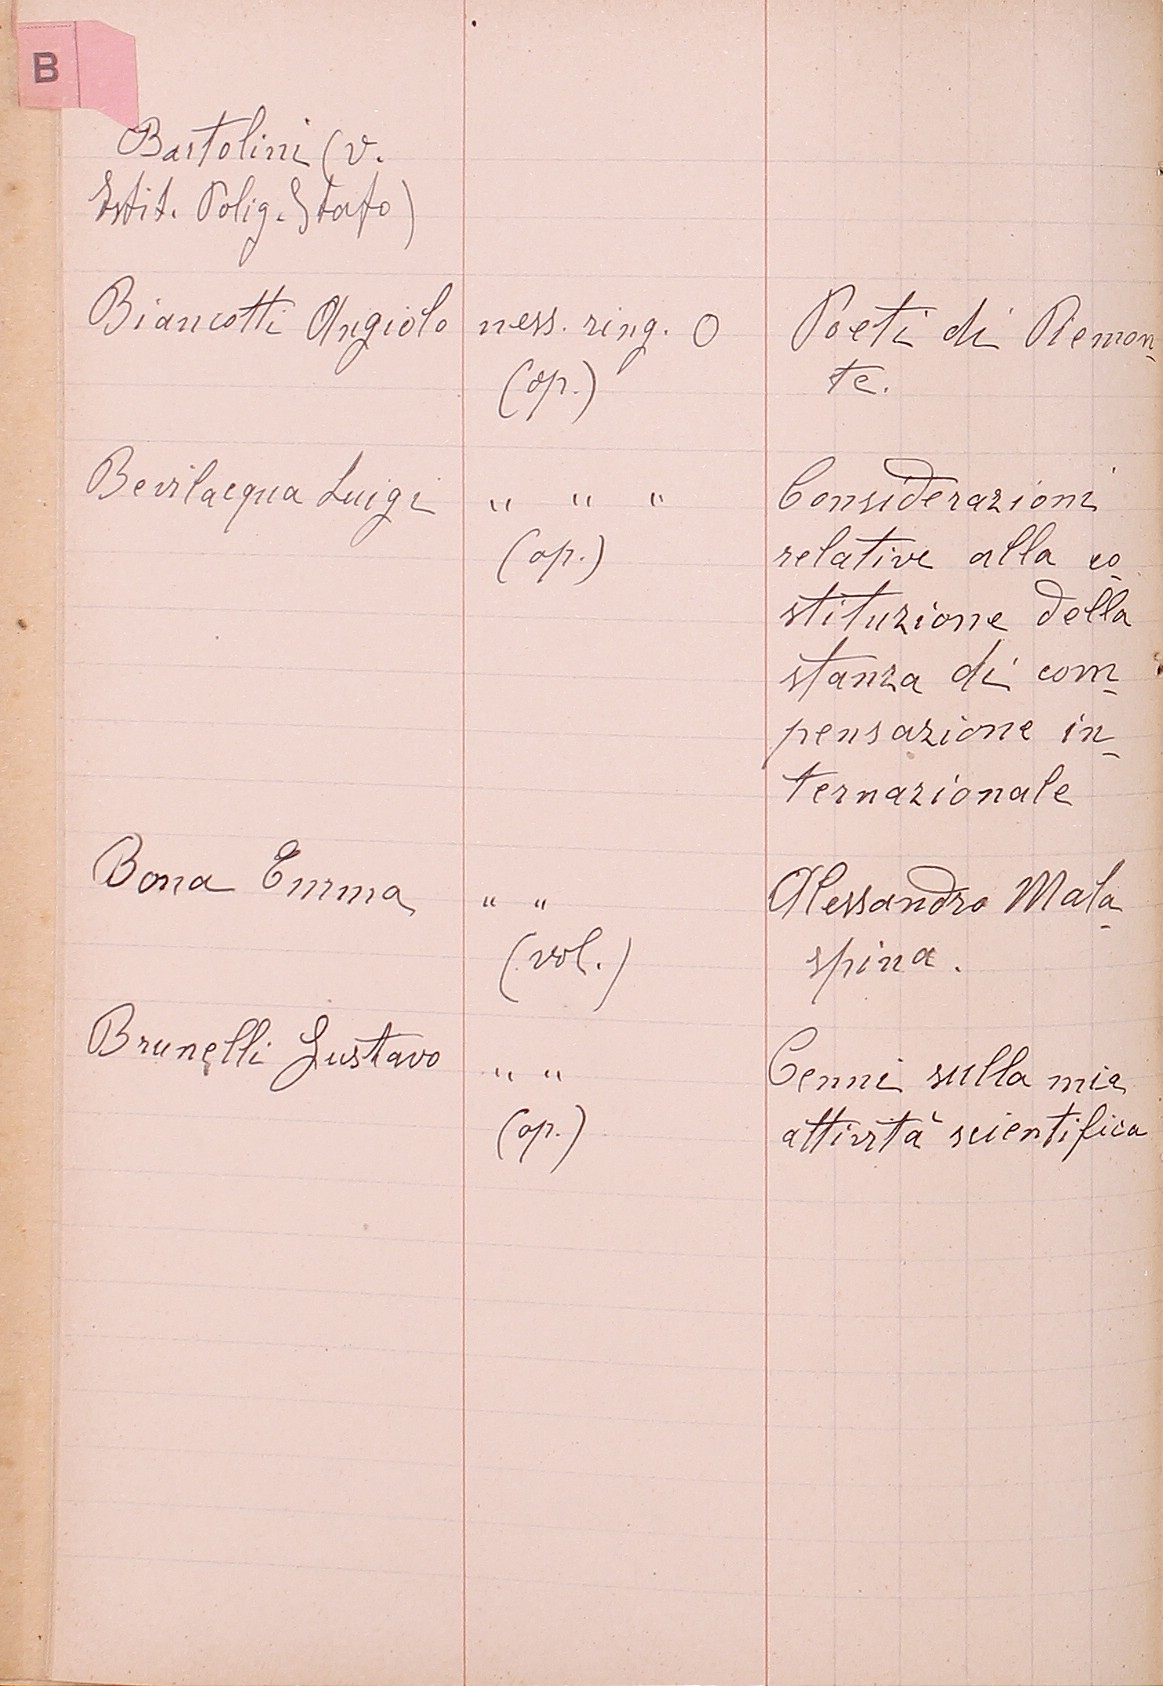 B
Bartolini (v.
Istit. Polig. Stato)
Biancotti Angiolo ness. ring. O Poeti di Piemon-
(op.) te.
Bevilacqua Luigi " " " Considerazioni
(op.) relative alla co-
stituzione della
stanza di com-
pensazione in-
ternazionale
Bona Emma " " Alessandro Mala-
(vol.) spina.
Brunelli Gustavo " " Cenni sulla mia
(op.) attività scientifica